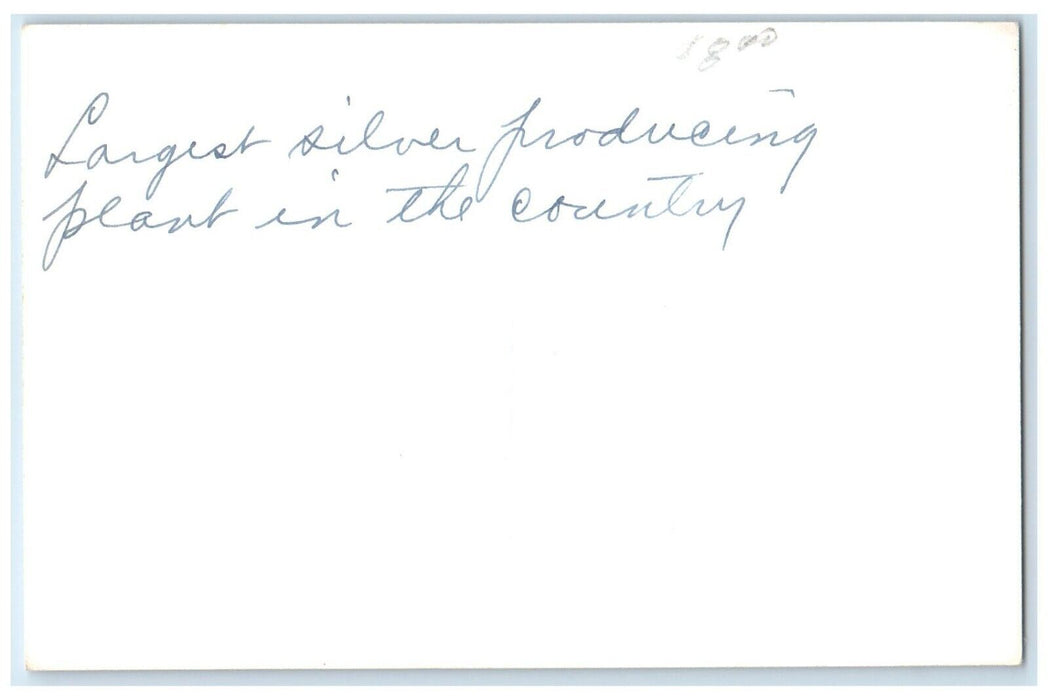 8⁰⁰
Largest silver producing
plant in the country